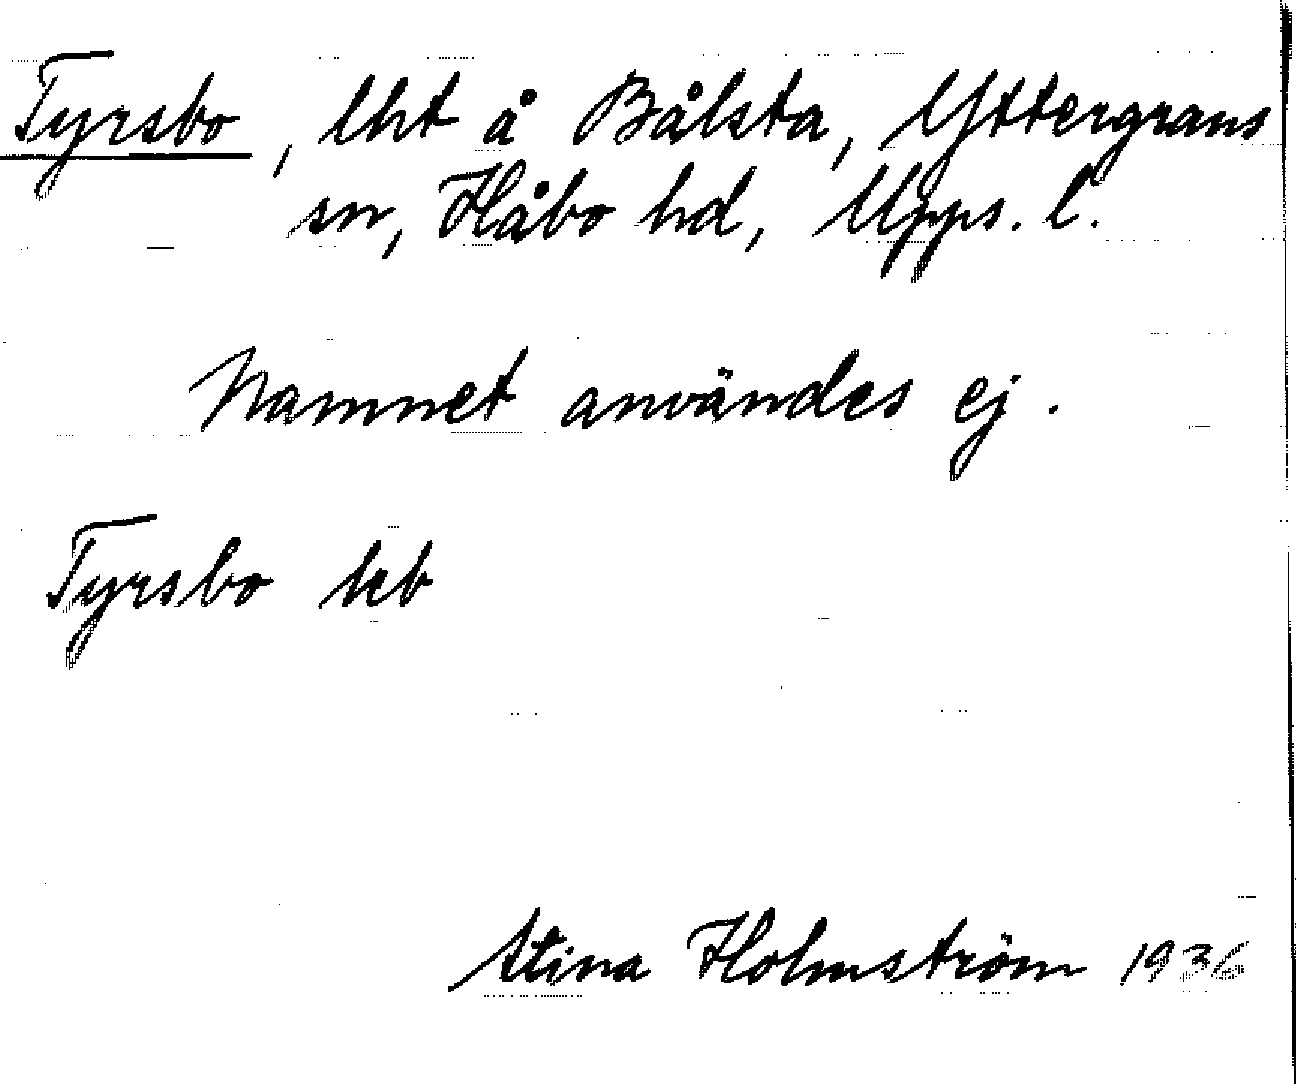 Tyrsbo, lht å Bålsta, Yttergrans
sn, Håbo hd, Upps. l.
Namnet användes ej.
Tyrsbo kb
Stina Holmström 1936